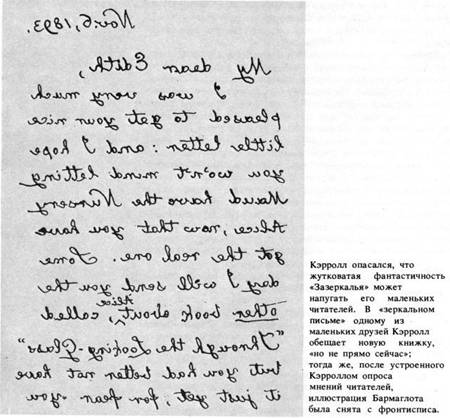 Nov. 6, 1893.
My dear Edith,
I was very much
pleased to get your nice
little letter: and I hope
you won't mind letting
Maud have the Nursery
Alice, now that you have
got the real one. Some
day I will send you the
other book about Alice, called
"Through the Looking-Glass"
but you had better not have
it just yet, for fear you
Кэрролл опасался, что
жутковатая фантастичность
«Зазеркалья» может
напугать его маленьких
читателей. В «зеркальном
письме» одному из
маленьких друзей Кэрролл
обещает новую книжку,
«но не прямо сейчас»;
тогда же, после устроенного
Кэрроллом опроса
мнений читателей,
иллюстрация Бармаглота
была снята с фронтисписа.